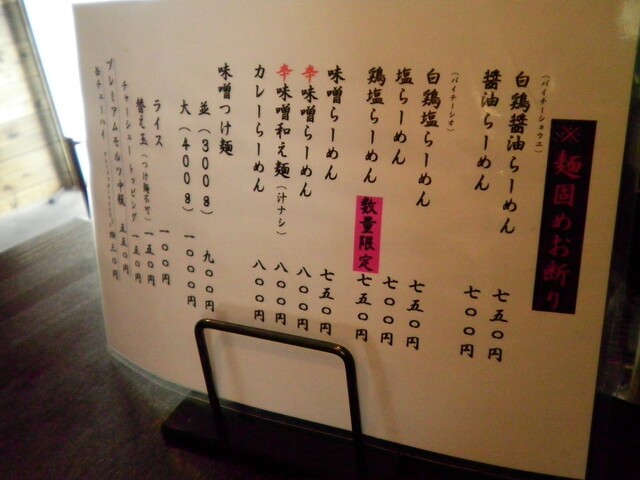 ※麺固めお断り
(パイチーショウユ)
白鶏醤油らーめん 七五〇円
醤油らーめん 七〇〇円
(パイチーシオ)
白鶏塩らーめん 七五〇円
塩らーめん 七〇〇円
鶏塩らーめん 数量限定 七五〇円
味噌らーめん 七五〇円
辛味噌らーめん 八〇〇円
辛味噌和え麺(汁ナシ) 八〇〇円
カレーらーめん 八〇〇円
味噌つけ麺
並(300g) 九〇〇円
大(400g) 一〇〇〇円
ライス 一〇〇円
替え玉(つけ麺不可) 一五〇円
チャーシュートッピング 一五〇円
プレミアムモルツ中瓶 五五〇円
缶チューハイ 三〇円